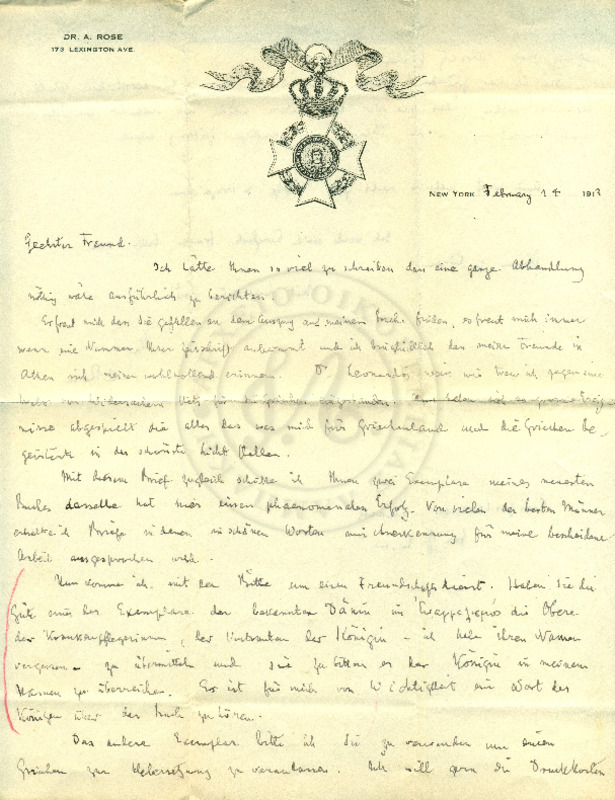 DR. A. ROSE
173 LEXINGTON AVE.
NEW YORK February 14 1913
Geehrter Freund.
Ich hätte Ihnen so viel zu schreiben dass eine ganze Abhandlung
nöthig wäre ausführlich zu berichten.
Es freut mich dass Sie gefallen an dem Auszug aus meinem Buche finden, es freut mich immer
wenn eine Nummer Ihrer Zeitschrift ankommt und ich dass meine Freunde in
Athen sich meiner wohlwollend erinnern. Dr Leonardos weiss wie treu ich gegen eine
Welt von Widersachern stets für die Griechen eingestanden. Nun haben sich grosse Ereig-
nisse abgespielt die alles das was mich für Griechenland und die Griechen be-
geisterte in das schönste Licht stellen.
Mit diesem Brief zugleich schicke ich Ihnen zwei Exemplare meines neuesten
Buches dasselbe hat hier einen phaenomenalen Erfolg. Von vielen der besten Männer
erhalte ich Briefe in denen in schönen Worten Anerkennung für meine bescheidene
Arbeit ausgesprochen wird.
Nun komme ich mit der Bitte um einen Freundschaftsdienst. Haben Sie die
Güte eins der Exemplare der bekannten Dänin im die Oberin
der Krankenpflegerinnen, der Vertrauten der Königin – ich habe ihren Namen
vergessen – zu übermitteln und sie zu bitten es der Königin in meinem
Namen zu überreichen. Es ist für mich von Wichtigkeit ein Wort der
Königin über das Buch zu hören.
Das andere Exemplar bitte ich Sie zu verwenden um einen
Griechen zur Uebersetzung zu veranlassen. Ich will gern die Druckkosten